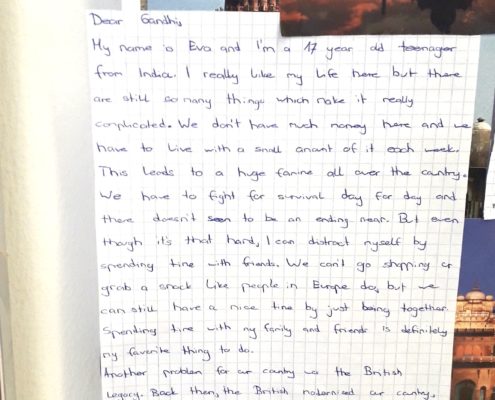 Dear Gandhi,
My name is Eva and I'm a 17 year old teenager
from India. I really like my life here but there
are still so many things which make it really
complicated. We don't have much money here and we
have to live with a small amount of it each week.
This leads to a huge famine all over the country.
We have to fight for survival day for day and
there doesn't seem to be an ending near. But even
though it's that hard, I can distract myself by
spending time with friends. We can't go shopping or
grab a snack like people in Europe do, but we
can still have a nice time by just being together.
Spending time with my family and friends is definitely
my favorite thing to do.
Another problem for our country is the British
Legacy. Back then, the British modernised our country,